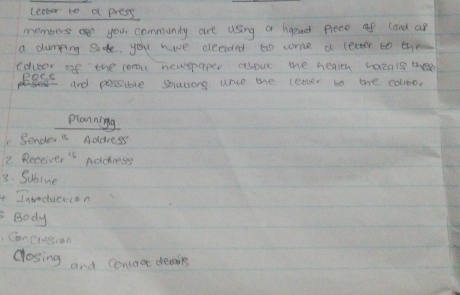 Letter to a press
members of your community are using a hazard piece of land as
a dumping site. you have decided to write a letter to the
editor of the local newspaper about the health hazards these
pose and possible solutions write the letter to the editor.
Planning
1. Sender's Address
2. Receiver's Address
3. Subline
4 Introduction
5 Body
. Conclusion
Closing and contact details